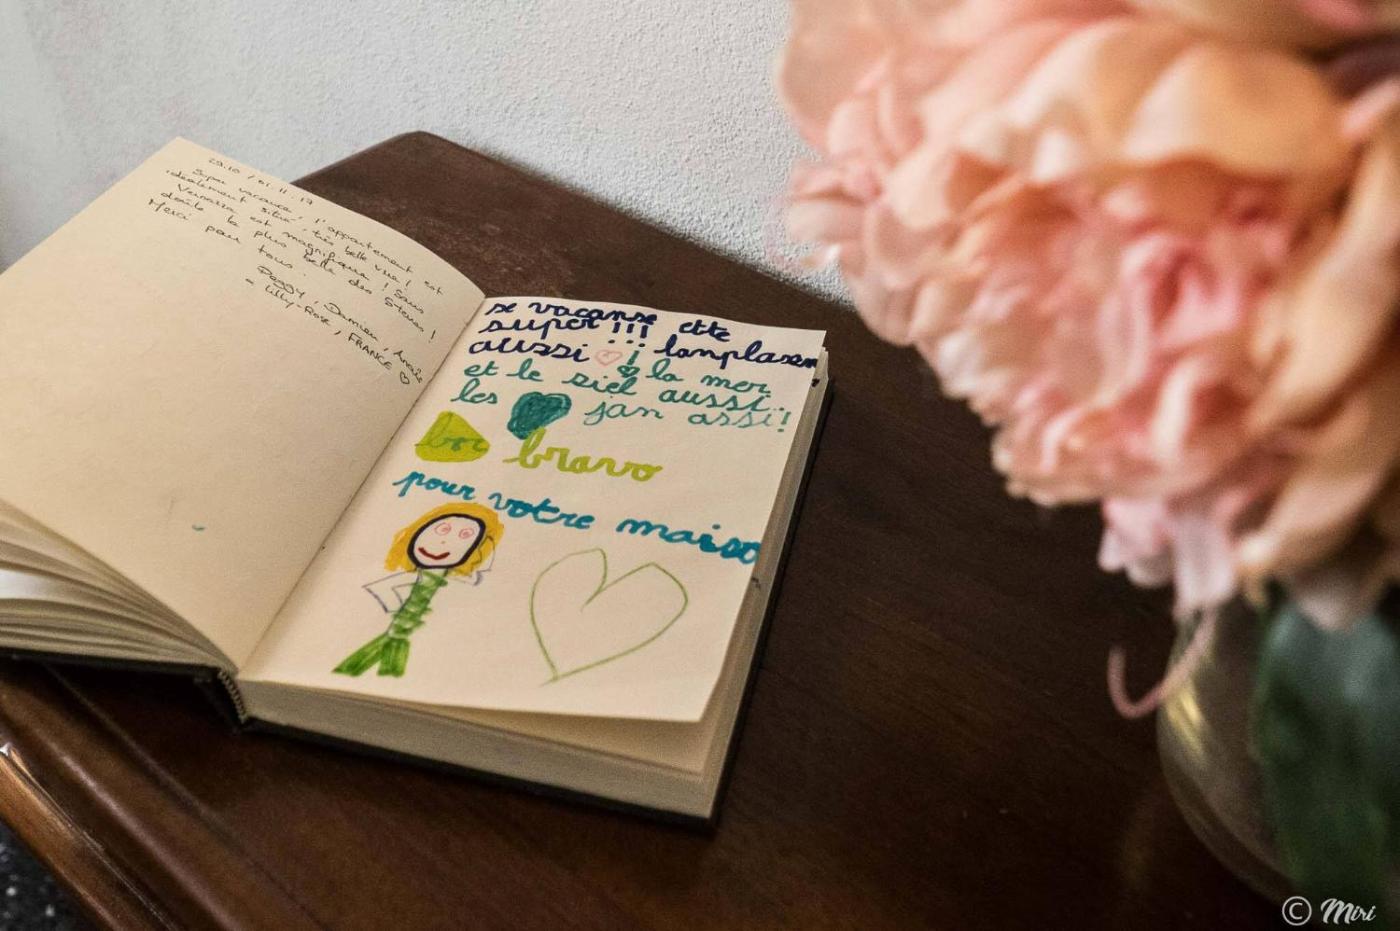 29.10 / 01.11.17
Super vacance, l'appartement est
idéalement situé, très belle vue !
Vernazza est magnifique ! Sans
doute la plus belle des 5 terres !
Merci pour tous.
Peggy, Damien, Anaïs
Lilly-Rose, FRANCE ♡
se vacanse ette
super !!!
aussi ♡ ! lanplasen
et le siel aussi.. la mer
les jan assi !
bravo
pour votre maiso
© Miri